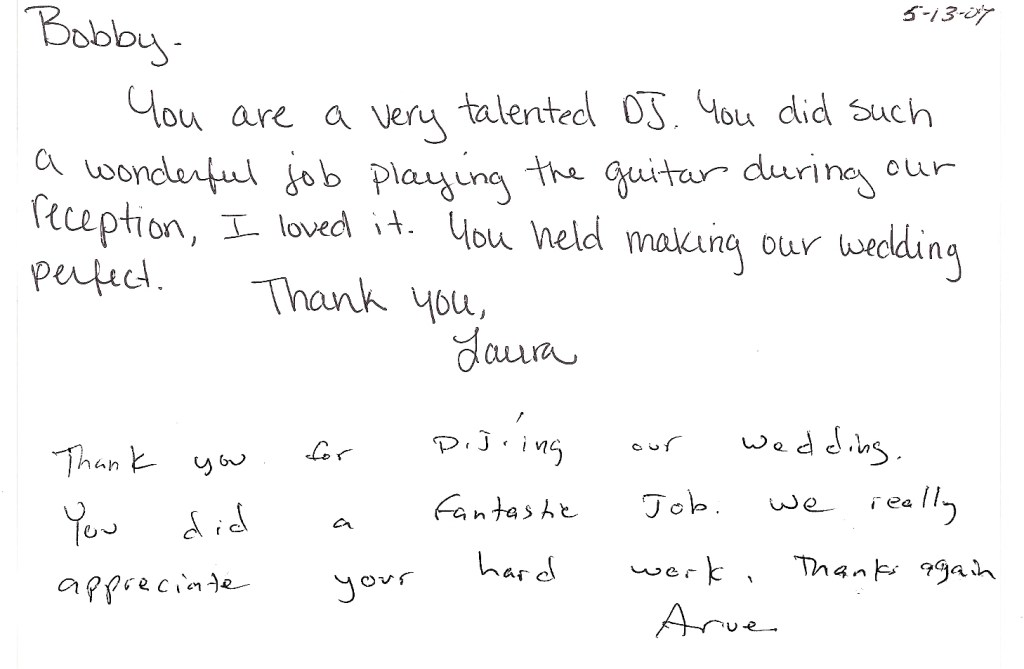 5-13-07
Bobby-
You are a very talented DJ. You did such
a wonderful job playing the guitar during our
reception, I loved it. You held making our wedding
perfect.
Thank you,
Laura
Thank you for D.J.'ing our wedding.
You did a fantastic Job. We really
appreciate your hard work. Thanks again
Arve